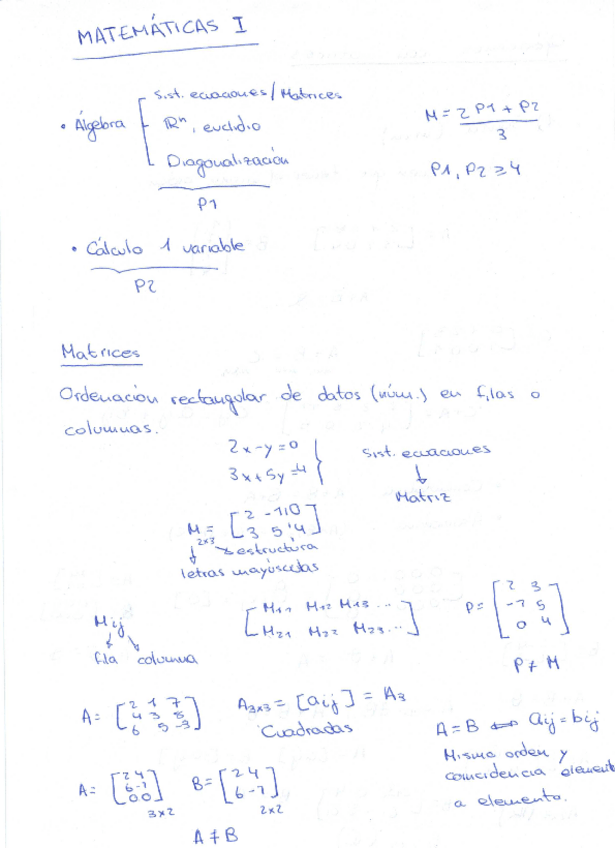 MATEMÁTICAS I
Sist. ecuaciones/Matrices
• Álgebra
Rⁿ, euclídio
Diagonalización
P1
M = 2 P1 + P2
3
P1, P2 ≥ 4
• Cálculo 1 variable
P2
Matrices
Ordenación rectangular de datos (núm.) en filas o
columnas.
2x - y = 0
3x + 5y = 4
Sist. ecuaciones
↓
Matriz
M = [2 -1 | 0
3 5 | 4]
2x3 → estructura
letras mayúsculas
Mij
fila columna
[M11 M12 M13 ...
M21 M22 M23 ...]
P = [2 3
-7 5
0 4]
P ≠ M
A = [2 1 7
4 3 8
6 5 -3]
A3x3 = [aij] = A3
Cuadradas
A = B ⟺ aij = bij
Mismo orden y
coincidencia elemento
a elemento.
A = [2 4
6 -7
0 0] 3x2
B = [2 4
6 -7] 2x2
A ≠ B